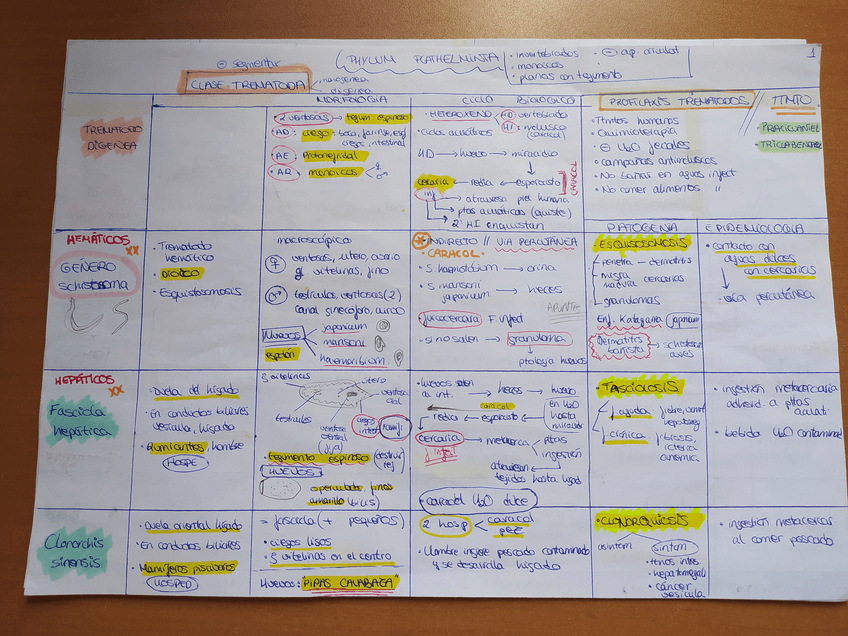 ⊖ segmentar
PHYLUM PLATHELMINTA
• invertebrados
• monoicos
• planos con tegumento
⊖ ap. circulat
1
CLASE TREMATODA
monogenea
digenea
MORFOLOGÍA
CICLO BIOLÓGICO
PROFILAXIS TREMATODOS
TTMTO
TREMATODO
DIGENEA
• 2 ventosas → tegum. espinoso
• AD: ciegos: boca, faringe, esof
ciegos intestinal
• AE: Protonefridial
• AR: monoicos ♀ ♂
• HETEROXENO
HD: vertebrado
HI: molusco
(caracol)
• Ciclos acuáticos
HD → huevo → miracidio
cercaria ← redia ← esporocisto
CARACOL
inf
→ atraviesa piel humana
→ ptas acuáticas (quiste)
→ 2º HI enquistan
• Ttmtos humanos
• Quimioterapia
• ⊖ H2O fecales
• campañas antimoluscos
• No bañar en aguas infect
• No comer alimentos "
PRAZICUANTEL
TRICLABENDAZ
HEMÁTICOS
XX
GÉNERO
Schistosoma
• Trematodo
hemático
• Dioico
• Esquistosomosis
macroscópico
♀ ventosas, útero, ovario
g vitelinas, fino
♂ testículos, ventosas (2)
canal ginecóforo, curvo
HUEVOS
espolón
japonicum
mansoni
haematobium
• INDIRECTO // VIA PERCUTÁNEA
• CARACOL •
• S. haematobium → orina
• S. mansoni
japonicum → heces
APUNTES
• furcocercaria F infect
• si no salen → granuloma
ptología huevos
PATOGENIA
EPIDEMIOLOGIA
• ESQUISTOSOMOSIS
penetra - dermatitis
migra
madura cercarias
granulomas
Enf. Katayama japonicum
Dermatitis
bañista
→ schistosoma
aves
• contacto con
aguas dulces
con cercarias
↓
vía percutánea
HEPÁTICOS
XX
Fasciola
hepática
• Duela del hígado
• En conductos biliares
vesícula, hígado
• Rumiantes, hombre
HOSPE
g vitelinas
útero
ventosa
oral
testículos
ventosa
ventral
(fija)
ciegos
intest
ramif
• tegumento espinoso (destruir
tej)
HUEVOS
operculados, finos
amarillo (bilis)
• huevos salen
a int. → heces → huevo
en H2O
hasta
miracidio
caracol
redia ← esporocisto
cercaria → metacerca → ptas
F infect
ingestión
atraviesan
tejidos hasta hígad
• caracol H2O dulce
• FASCIOLOSIS
F. aguda
fiebre, vomit
hepatomeg
F. crónica
fibrosis, icteria
anemia
• ingestión metacercaria
adherid. a pltas
acuati.
• bebida H2O contaminad
Clonorchis
sinensis
• Duela oriental hígado
• En conductos biliares
• Mamíferos piscívoros
HOSPED
= fasciola (+ pequeños)
• ciegos lisos
• g vitelinas en el centro
HUEVOS: "PIPAS CALABAZA"
2 hosp
caracol
pez
• Hombre ingiere pescado contaminado
y se desarrolla hígado
• CLONORQUIOSIS
asintom
sintom
• hepatomegali
• cáncer
vesícula
• ingestión metacercar
al comer pescado